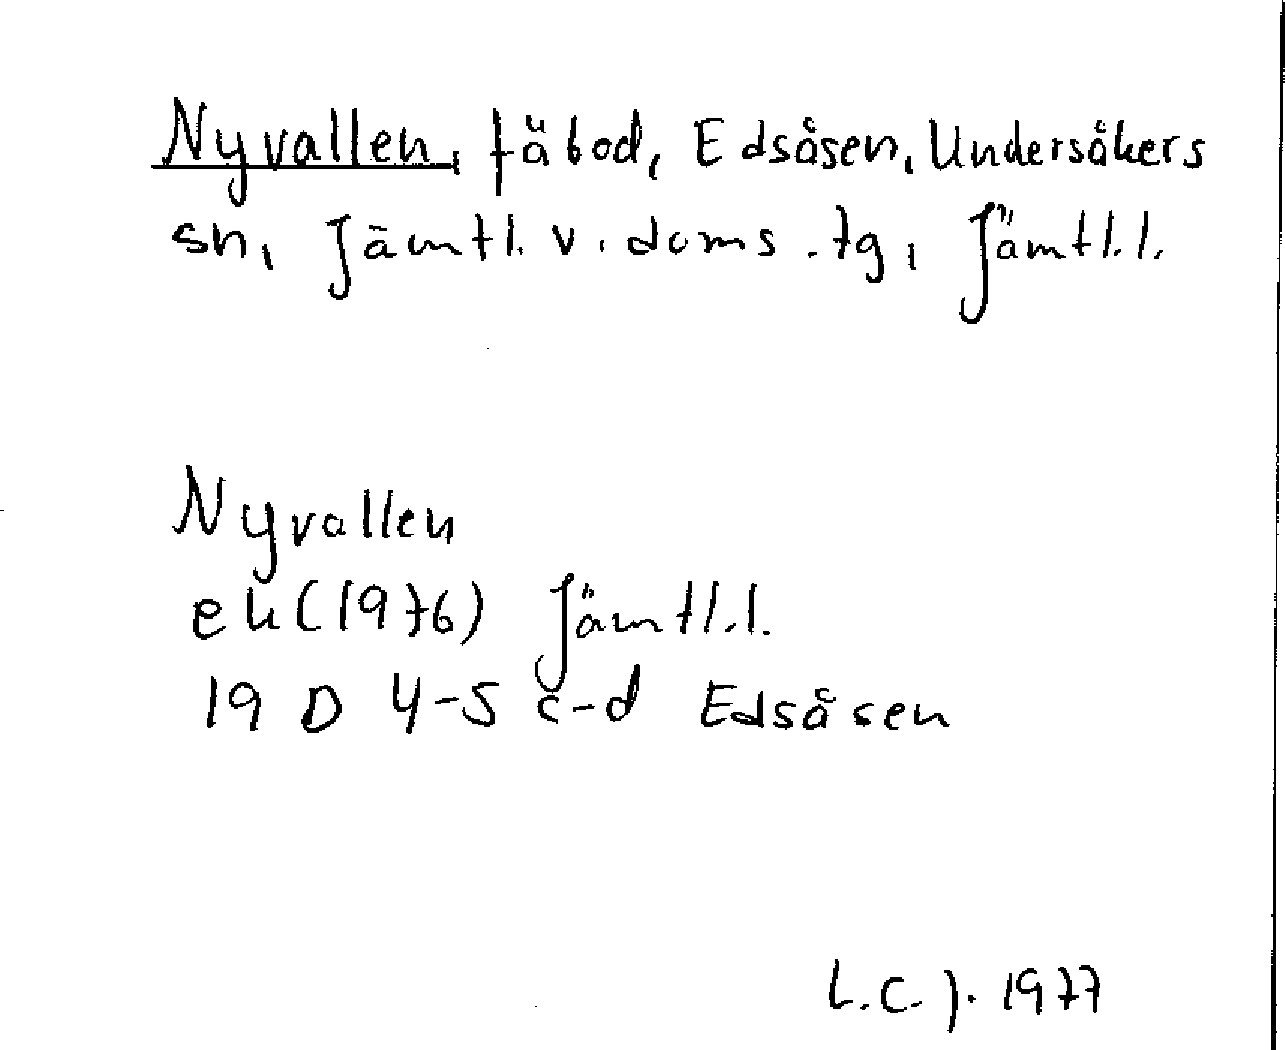 Nyvallen, fäbod, Edsåsen, Undersåkers
sn, Jämtl. v. doms.tg, Jämtl.l.
Nyvallen
ek (1976) Jämtl.l.
19 D 4-5 c-d Edsåsen
L.C.J. 1977